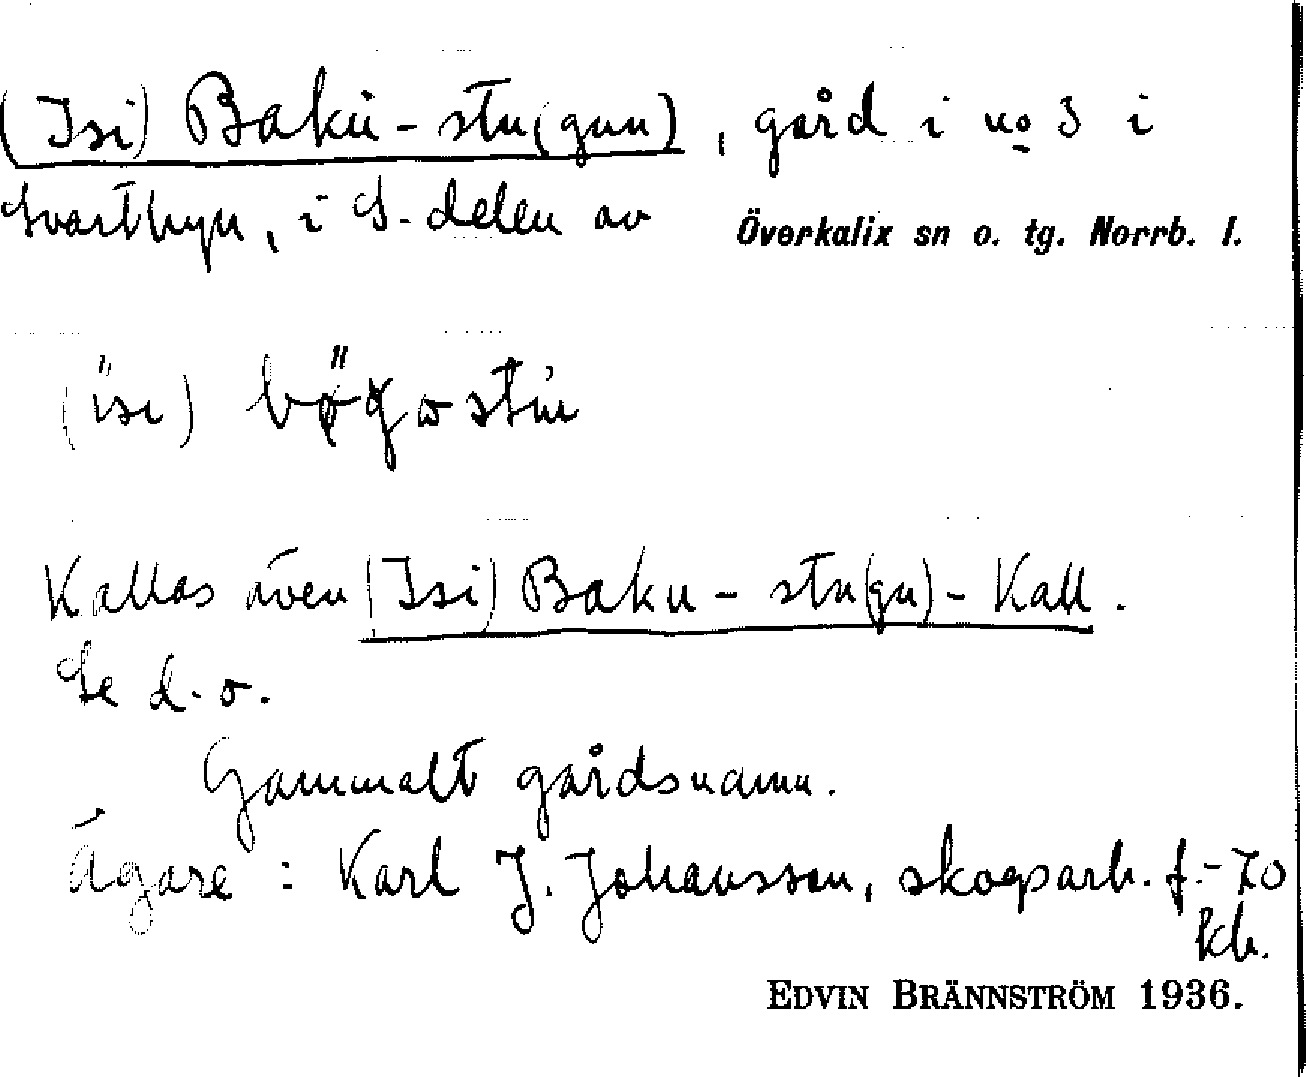 (Isi) Baku-stu(gun), gård i no 3 i
Svartbyn, i S-delen av Överkalix sn o. tg. Norrb. l.
(isi)
Kallas även (Isi) Baku-stu(gu)-Kall.
Se d.o.
Gammalt gårdsnamn.
Ägare: Karl J. Johansson, skogsarb. f.-70
kb.
EDVIN BRÄNNSTRÖM 1936.